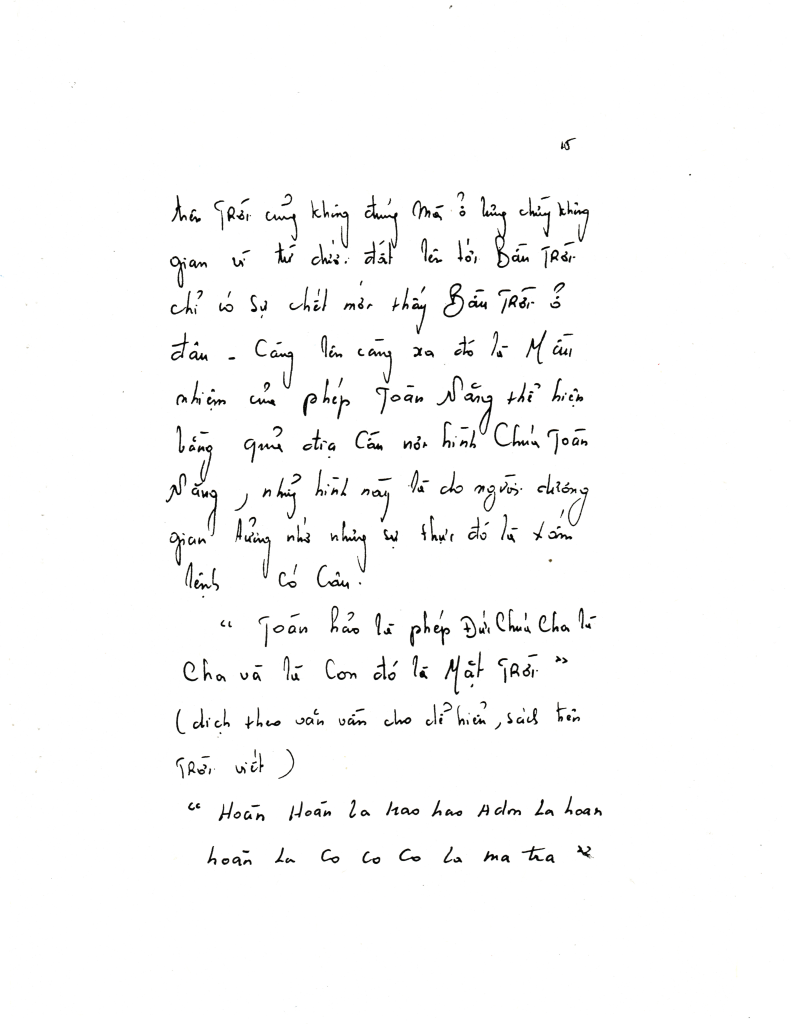 15
trên TRời cũng không đúng mà ở lừng chừng không
gian vì từ chưa đất lên tới Bàn TRời
chỉ có sự chết mới thấy Bàn TRời ở
đâu - Càng lên càng xa đó là Mầu
nhiệm của phép Toàn Năng thể hiện
bằng quả địa Cầu nơi hình Chúa Toàn
Năng, những hình này là cho người dương
gian tưởng nhớ những sự thực đó là
lệnh có Câu.
" Toàn hảo là phép Đức Chúa Cha là
Cha và là Con đó là Mặt TRời "
( dịch theo vần vần cho dể hiển, sách trên
TRời viết )
" Hoàn Hoàn la hao hao Adm La hoan
hoàn La Co Co Co la ma tra "